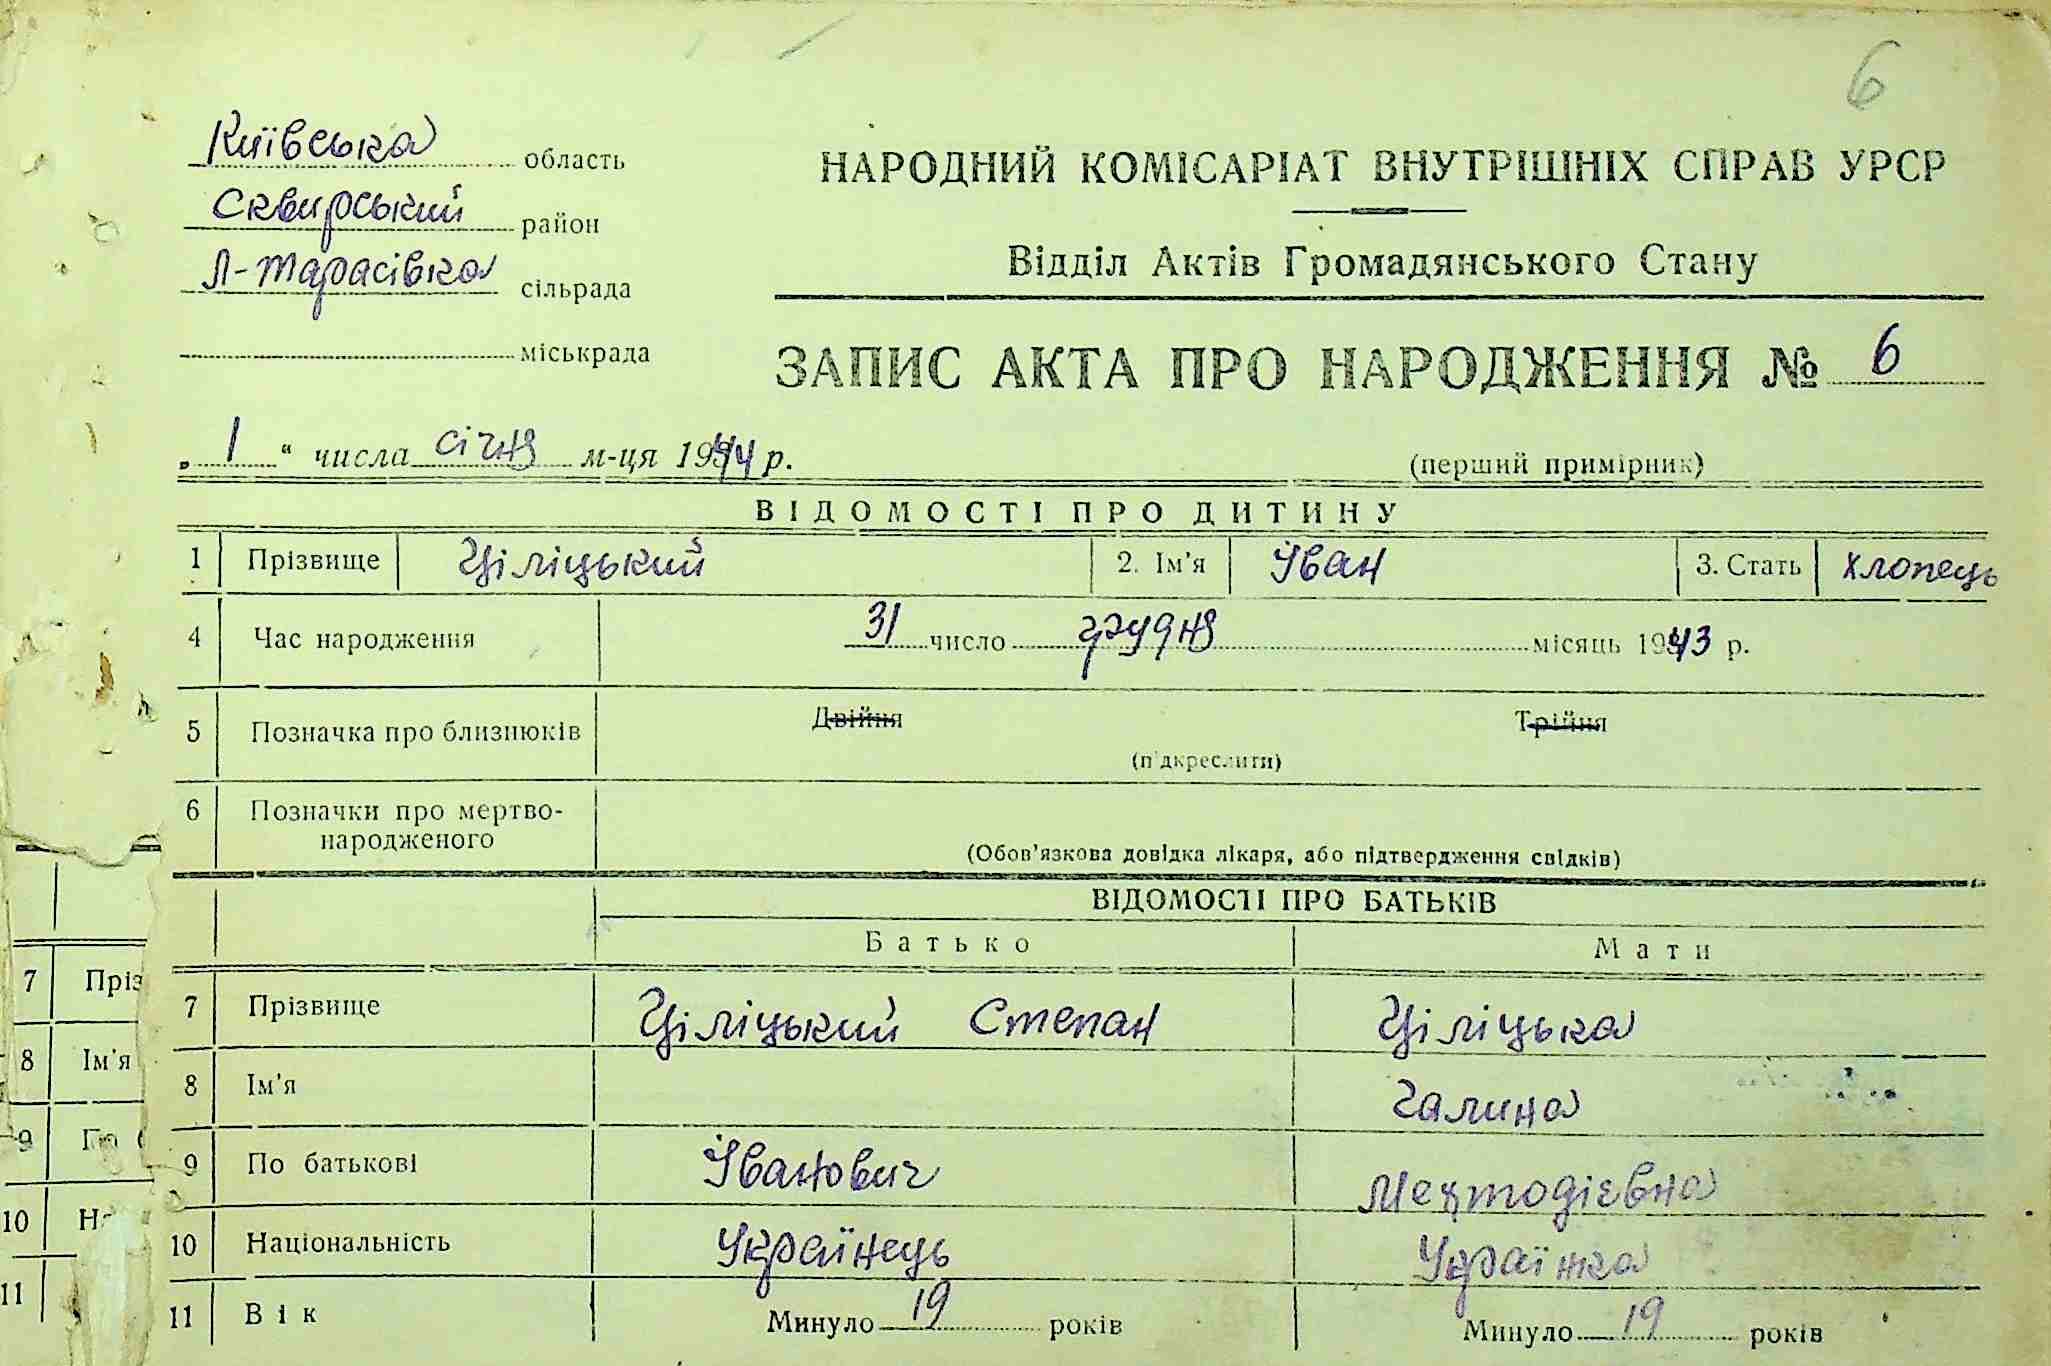 6
Київська область
Сквирський район
Л-Тарасівка сільрада
міськрада
НАРОДНИЙ КОМІСАРІАТ ВНУТРІШНІХ СПРАВ УРСР
Відділ Актів Громадянського Стану
ЗАПИС АКТА ПРО НАРОДЖЕННЯ № 6
„ 1 “ числа січня м-ця 1944 р. (перший примірник)
ВІДОМОСТІ ПРО ДИТИНУ
1 Прізвище Ціліцький 2. Ім'я Іван 3. Стать хлопець
4 Час народження 31 число грудня місяць 1943 р.
5 Позначка про близнюків Двійня Трійня
(підкреслити)
6 Позначки про мертво-
народженого
(Обов'язкова довідка лікаря, або підтвердження свідків)
ВІДОМОСТІ ПРО БАТЬКІВ
Батько Мати
7 Пріз 7 Прізвище Ціліцький Степан Ціліцька
8 Ім'я 8 Ім'я Галина
9 9 По батькові Іванович Мехтодієвна
10 10 Національність Українець Українка
11 11 Вік Минуло 19 років Минуло 19 років